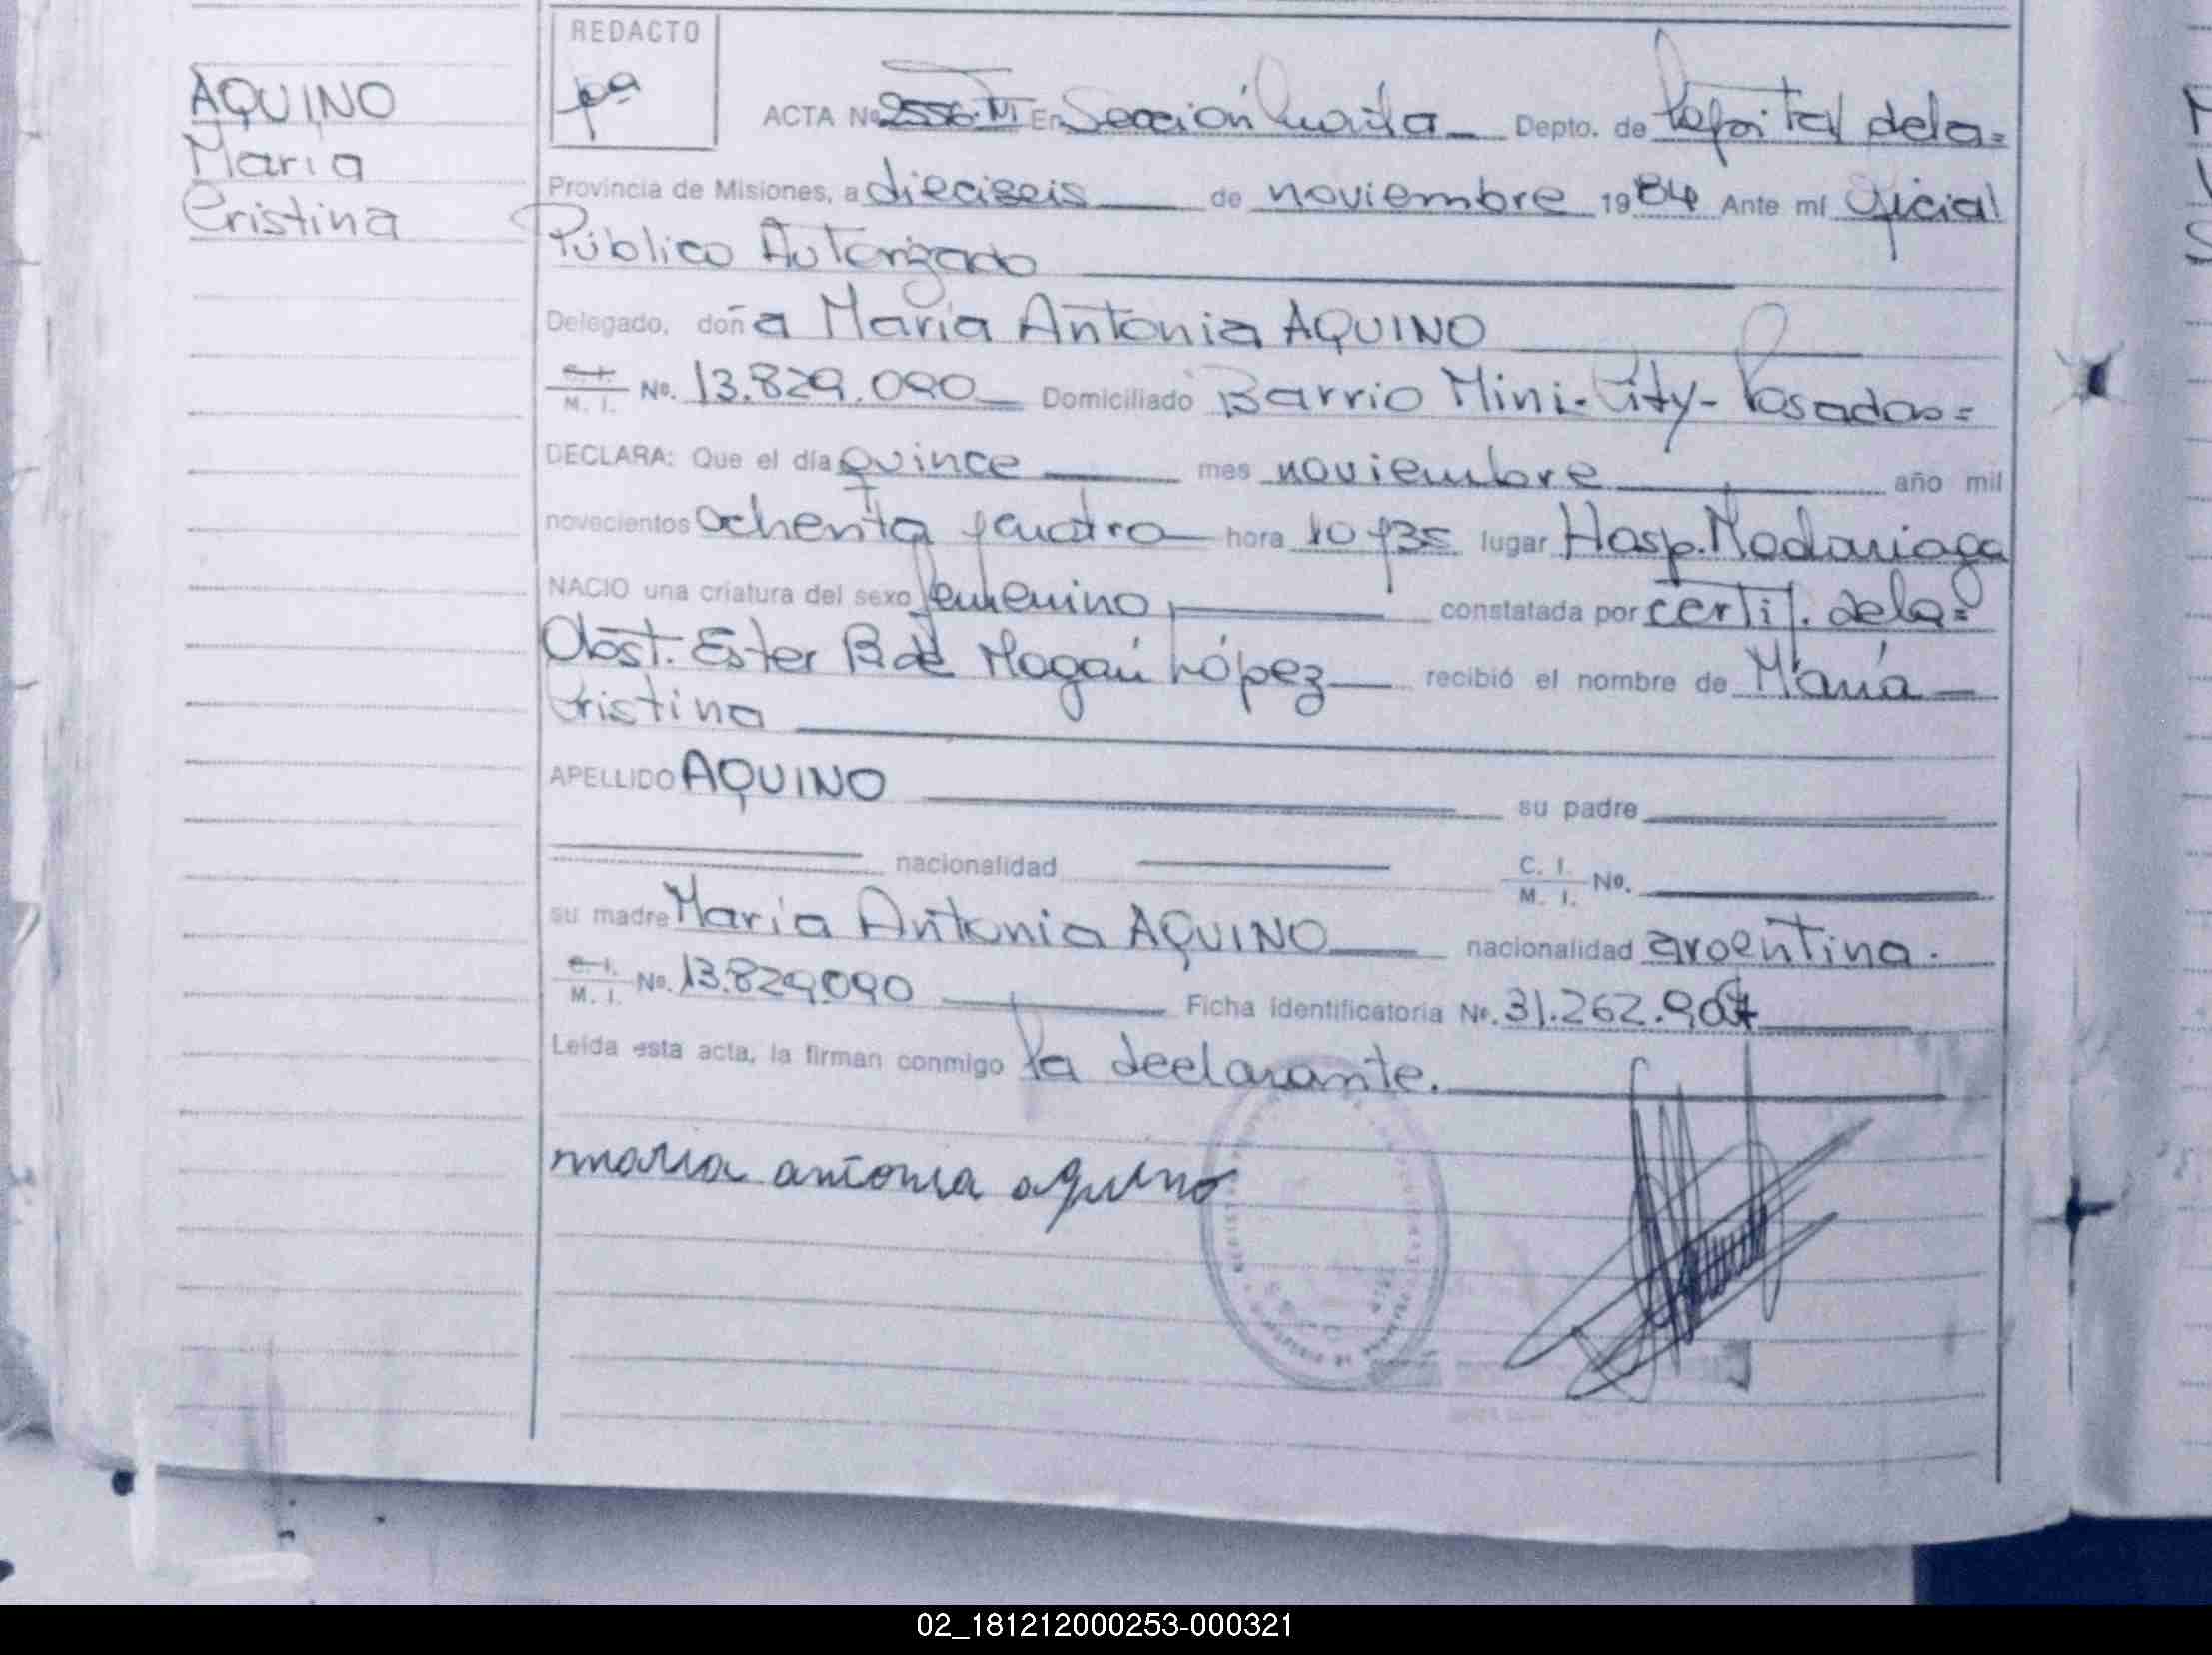 AQUINO
Maria
Cristina
REDACTO
ACTA Nº 2556-VI En Sección Cuarta Depto. de Capital de la=
Provincia de Misiones, a dieciseis de noviembre 1984 Ante mí Oficial
Público Autorizado
Delegado, doña María Antonia AQUINO
C. I.
M. I. Nº. 13.829.090 Domiciliado Barrio Mini-City- Posadas=
DECLARA: Que el día quince mes noviembre año mil
novecientos ochenta y cuatro hora 10 y 35 lugar Hosp. Madariaga
NACIO una criatura del sexo femenino, constatada por certif. de la=
Obst. Ester B de Magán López recibió el nombre de María
Cristina
APELLIDO AQUINO su padre
nacionalidad C. I.
M. I. Nº.
su madre María Antonia AQUINO nacionalidad argentina.
C. I.
M. I. Nº. 13.829.090 Ficha identificatoria Nº. 31.262.907
Leída esta acta, la firman conmigo la declarante.
maria antonia aquino
02_181212000253-000321